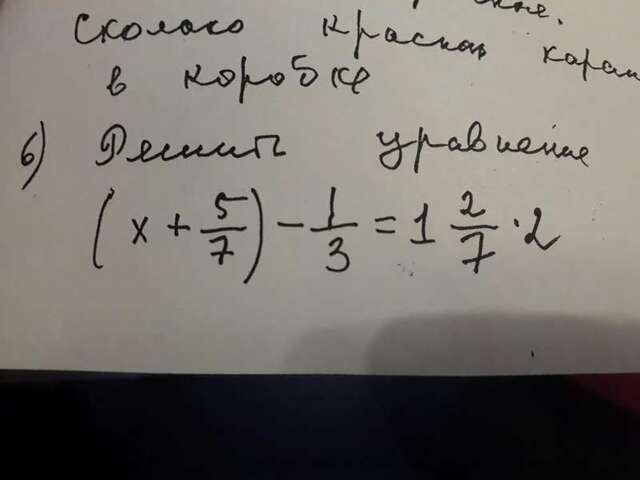 Сколько красных каран
в коробке
6) Решить уравнение
(x + 5/7) - 1/3 = 1 2/7 · 2